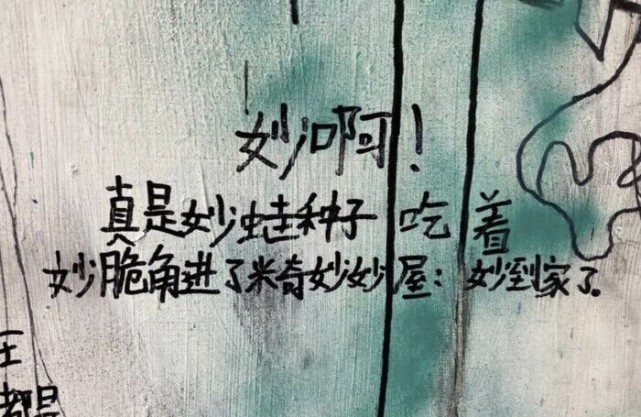 妙啊!
真是妙蛙种子吃着
妙脆角进了米奇妙妙屋:妙到家了。
王
都是